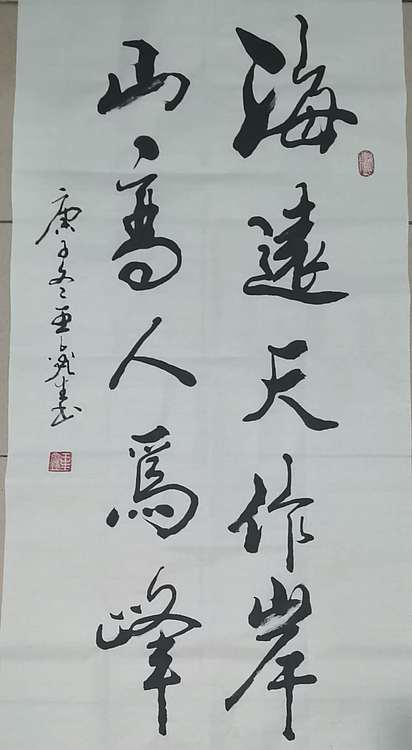 海遠天作岸
山高人為峰
庚子冬王